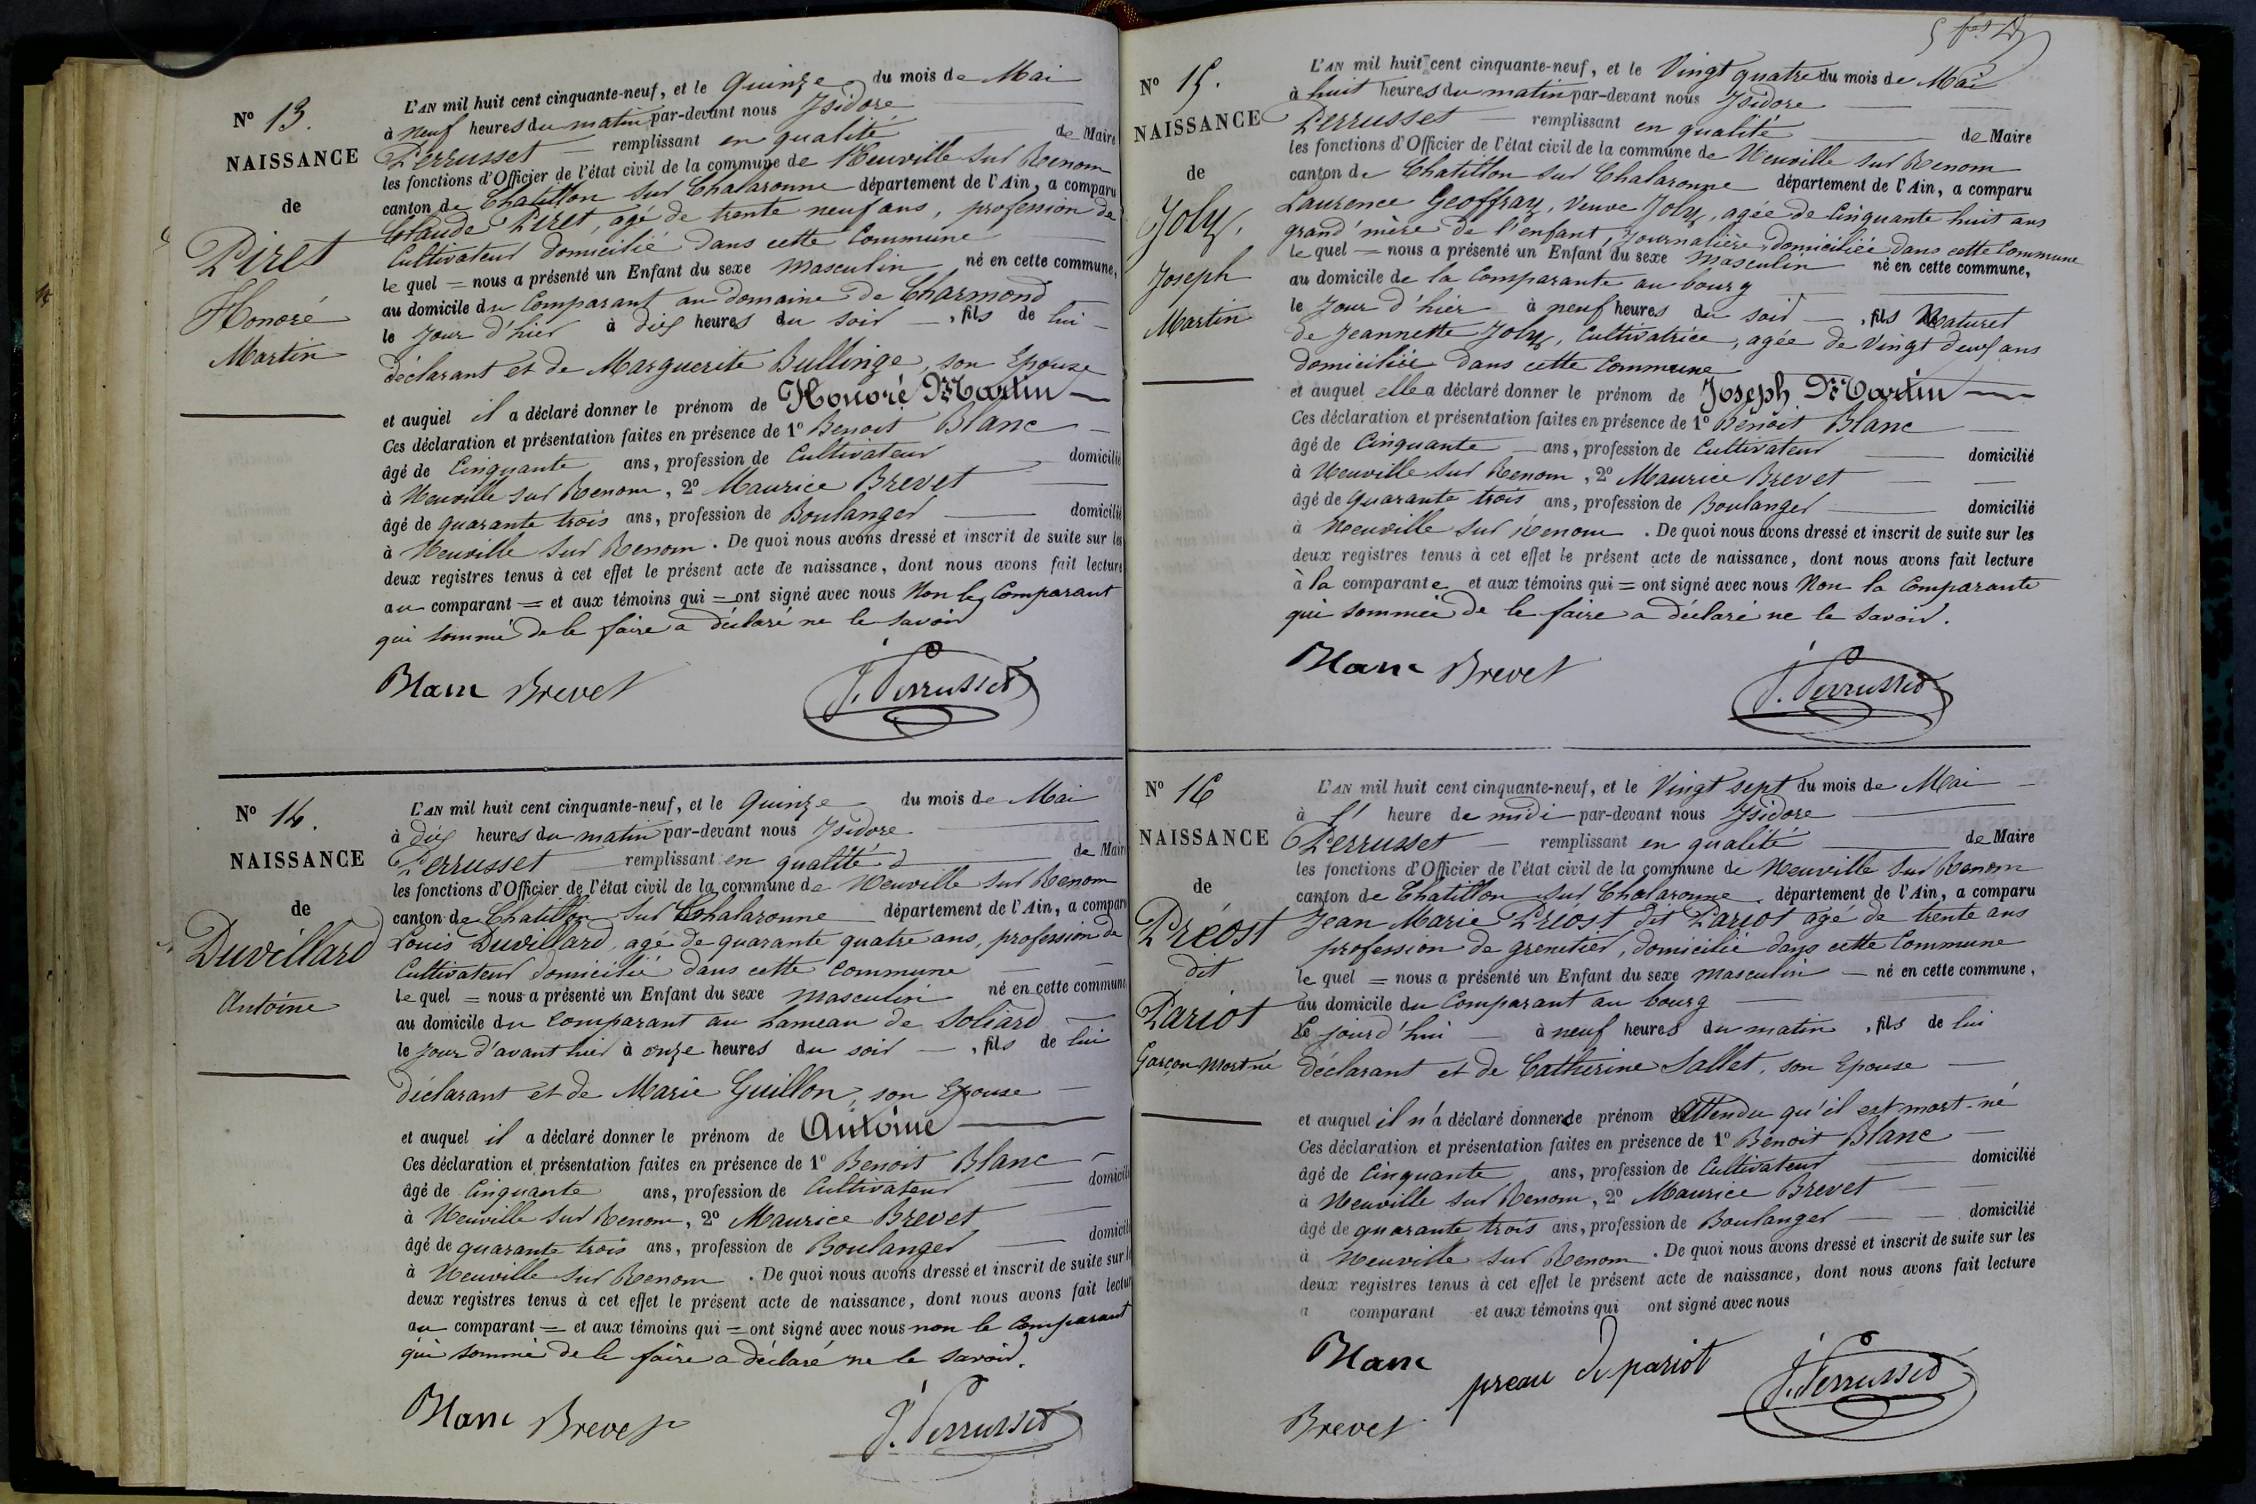 Nº 13.
NAISSANCE
de
Piret
Honoré
Martin
L'AN mil huit cent cinquante-neuf, et le Quinze du mois de Mai
à neuf heures du matin par-devant nous Isidore
Perrusset remplissant en qualité de Maire
les fonctions d'Officier de l'état civil de la commune de Neuville sur Renom
canton de Chatillon sur Chalaronne département de l'Ain, a comparu
Claude Piret, agé de trente neuf ans, profession de
Cultivateur domicilié dans cette Commune
le quel = nous a présenté un Enfant du sexe masculin né en cette commune,
au domicile du Comparant au domaine de Charmond
le jour d'hier à dix heures du soir, fils de lui
déclarant et de Marguerite Bullinge, son Epouse
et auquel il a déclaré donner le prénom de Honoré Martin
Ces déclaration et présentation faites en présence de 1º Benoit Blanc
âgé de Cinquante ans, profession de Cultivateur domicilié
à Neuville sur Renom, 2º Maurice Brevet
âgé de quarante trois ans, profession de Boulanger domicilié
à Neuville sur Renom. De quoi nous avons dressé et inscrit de suite sur les
deux registres tenus à cet effet le présent acte de naissance, dont nous avons fait lecture
au comparant = et aux témoins qui = ont signé avec nous Non le Comparant
qui sommé de le faire a déclaré ne le savoir
Blanc Brevet J. Perrusset
Nº 14.
NAISSANCE
de
Duvillard
Antoine
L'AN mil huit cent cinquante-neuf, et le Quinze du mois de Mai
à dix heures du matin par-devant nous Isidore
Perrusset remplissant en qualité de Maire
les fonctions d'Officier de l'état civil de la commune de Neuville sur Renom
canton de Chatillon sur Chalaronne département de l'Ain, a comparu
Louis Duvillard, agé de quarante quatre ans, profession de
Cultivateur domicilié dans cette commune
le quel = nous a présenté un Enfant du sexe masculin né en cette commune
au domicile du comparant au hameau de Soliard
le jour d'avant hier à onze heures du soir, fils de lui
déclarant et de Marie Guillon, son Epouse
et auquel il a déclaré donner le prénom de Antoine
Ces déclaration et présentation faites en présence de 1º Benoit Blanc
âgé de Cinquante ans, profession de Cultivateur domicilié
à Neuville sur Renom, 2º Maurice Brevet
âgé de quarante trois ans, profession de Boulanger domicilié
à Neuville sur Renom. De quoi nous avons dressé et inscrit de suite sur les
deux registres tenus à cet effet le présent acte de naissance, dont nous avons fait lecture
au comparant = et aux témoins qui = ont signé avec nous non le Comparant
qui sommé de le faire a déclaré ne le savoir.
Blanc Brevet J. Perrusset
Nº 15.
NAISSANCE
de
Joly,
Joseph
Martin
L'AN mil huit cent cinquante-neuf, et le Vingt quatre du mois de Mai
à huit heures du matin par-devant nous Isidore
Perrusset remplissant en qualité de Maire
les fonctions d'Officier de l'état civil de la commune de Neuville sur Renom
canton de Chatillon sur Chalaronne département de l'Ain, a comparu
Laurence Geoffray, veuve Joly, agée de Cinquante huit ans
grand'mère de l'enfant, journalière, domiciliée dans cette Commune
le quel = nous a présenté un Enfant du sexe masculin né en cette commune,
au domicile de la Comparante au bourg
le jour d'hier à neuf heures du soir, fils Naturel
de Jeannette Joly, Cultivatrice, agée de Vingt deux ans
domiciliée dans cette Commune
et auquel elle a déclaré donner le prénom de Joseph Martin
Ces déclaration et présentation faites en présence de 1º Benoit Blanc
âgé de Cinquante ans, profession de Cultivateur domicilié
à Neuville sur Renom, 2º Maurice Brevet
âgé de Quarante trois ans, profession de Boulanger domicilié
à Neuville sur Renom. De quoi nous avons dressé et inscrit de suite sur les
deux registres tenus à cet effet le présent acte de naissance, dont nous avons fait lecture
à la comparante et aux témoins qui = ont signé avec nous Non la Comparante
qui sommée de le faire a déclaré ne le savoir.
Blanc Brevet J. Perrusset
Nº 16
NAISSANCE
de
Préost
dit
Pariot
Garçon mort né
L'AN mil huit cent cinquante-neuf, et le Vingt sept du mois de Mai
à l' heure de midi par-devant nous Isidore
Perrusset remplissant en qualité de Maire
les fonctions d'Officier de l'état civil de la commune de Neuville sur Renom
canton de Chatillon sur Chalaronne département de l'Ain, a comparu
Jean Marie Préost dit Pariot agé de trente ans
profession de grenetier, domicilié dans cette Commune
le quel = nous a présenté un Enfant du sexe masculin né en cette commune,
au domicile du Comparant au bourg
le jourd'hui à neuf heures du matin, fils de lui
déclarant et de Catherine Sallet, son Epouse
et auquel il n'a déclaré donner de prénom attendu qu'il est mort-né
Ces déclaration et présentation faites en présence de 1º Benoit Blanc
âgé de Cinquante ans, profession de Cultivateur domicilié
à Neuville sur Renom, 2º Maurice Brevet
âgé de quarante trois ans, profession de Boulanger domicilié
à Neuville sur Renom. De quoi nous avons dressé et inscrit de suite sur les
deux registres tenus à cet effet le présent acte de naissance, dont nous avons fait lecture
a comparant et aux témoins qui ont signé avec nous
Blanc preau di pariot J. Perrusset
Brevet